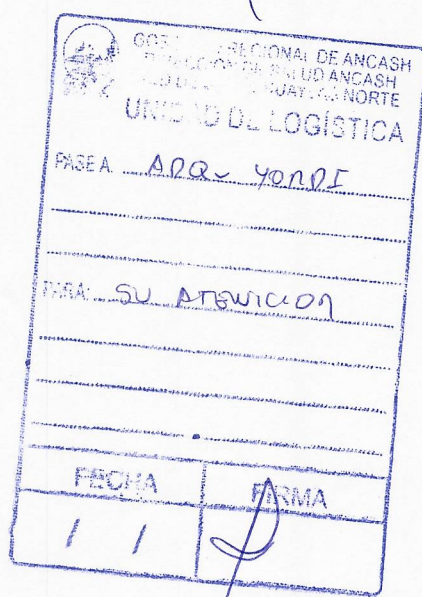 REGIONAL DE ANCASH
SALUD ANCASH
NORTE
UNIDAD DE LOGÍSTICA
PASE A: ADQ YORDI
PARA: SU ATENCION
FECHA FIRMA
/ /